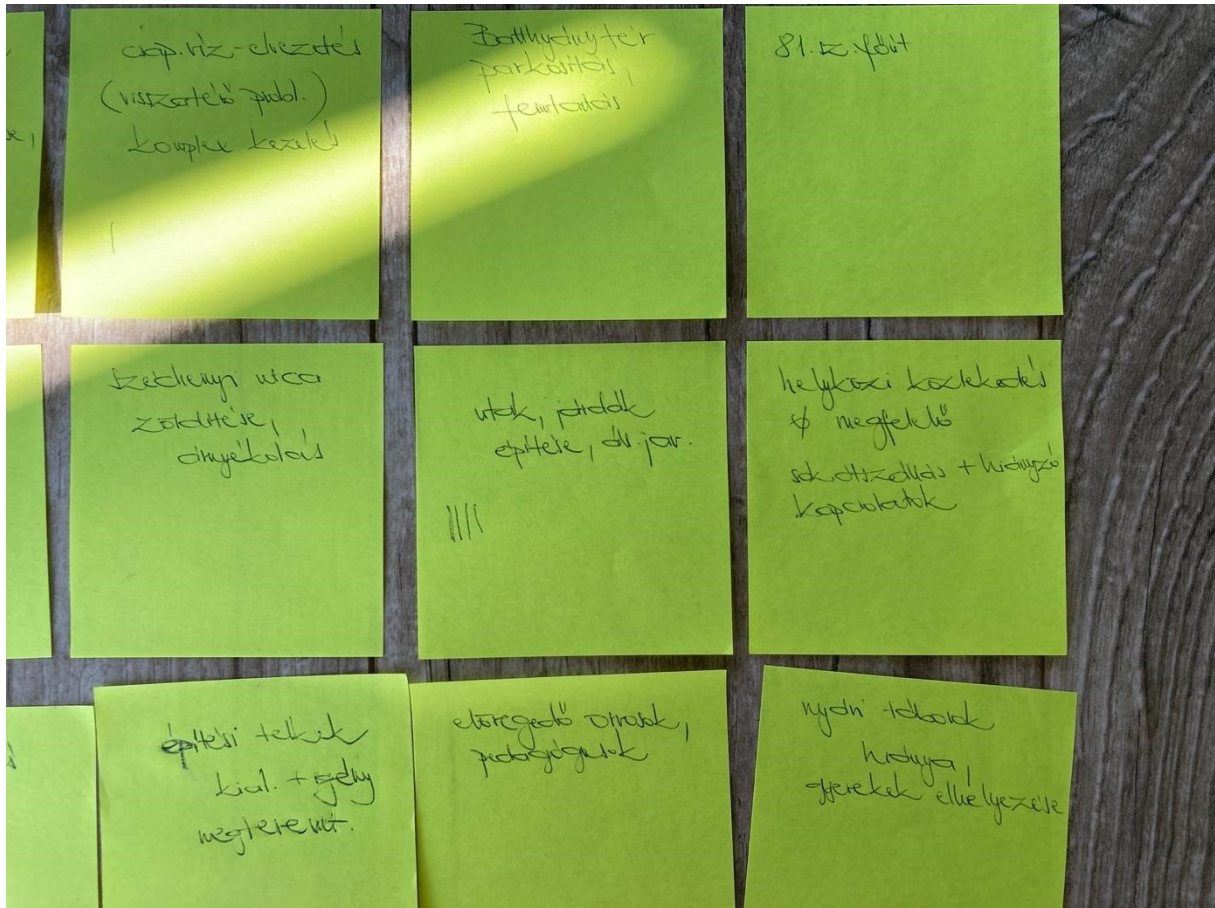 csap.víz-elvezetés
(visszatérő probl.)
komplex kezelés
Batthyány tér
parkosítás,
fenntartás
81. sz. főút
Széchenyi utca
zöldítése,
árnyékolás
utak, járdák
építése, ár. jav.
||||
helyközi közlekedés
∅ megfelelő
sok átszállás + hiányzó
kapcsolatok
építési telkek
kial. + igény
megteremt.
elöregedő orvosok,
pedagógusok
nyári táborok
hiánya,
gyerekek elhelyezése